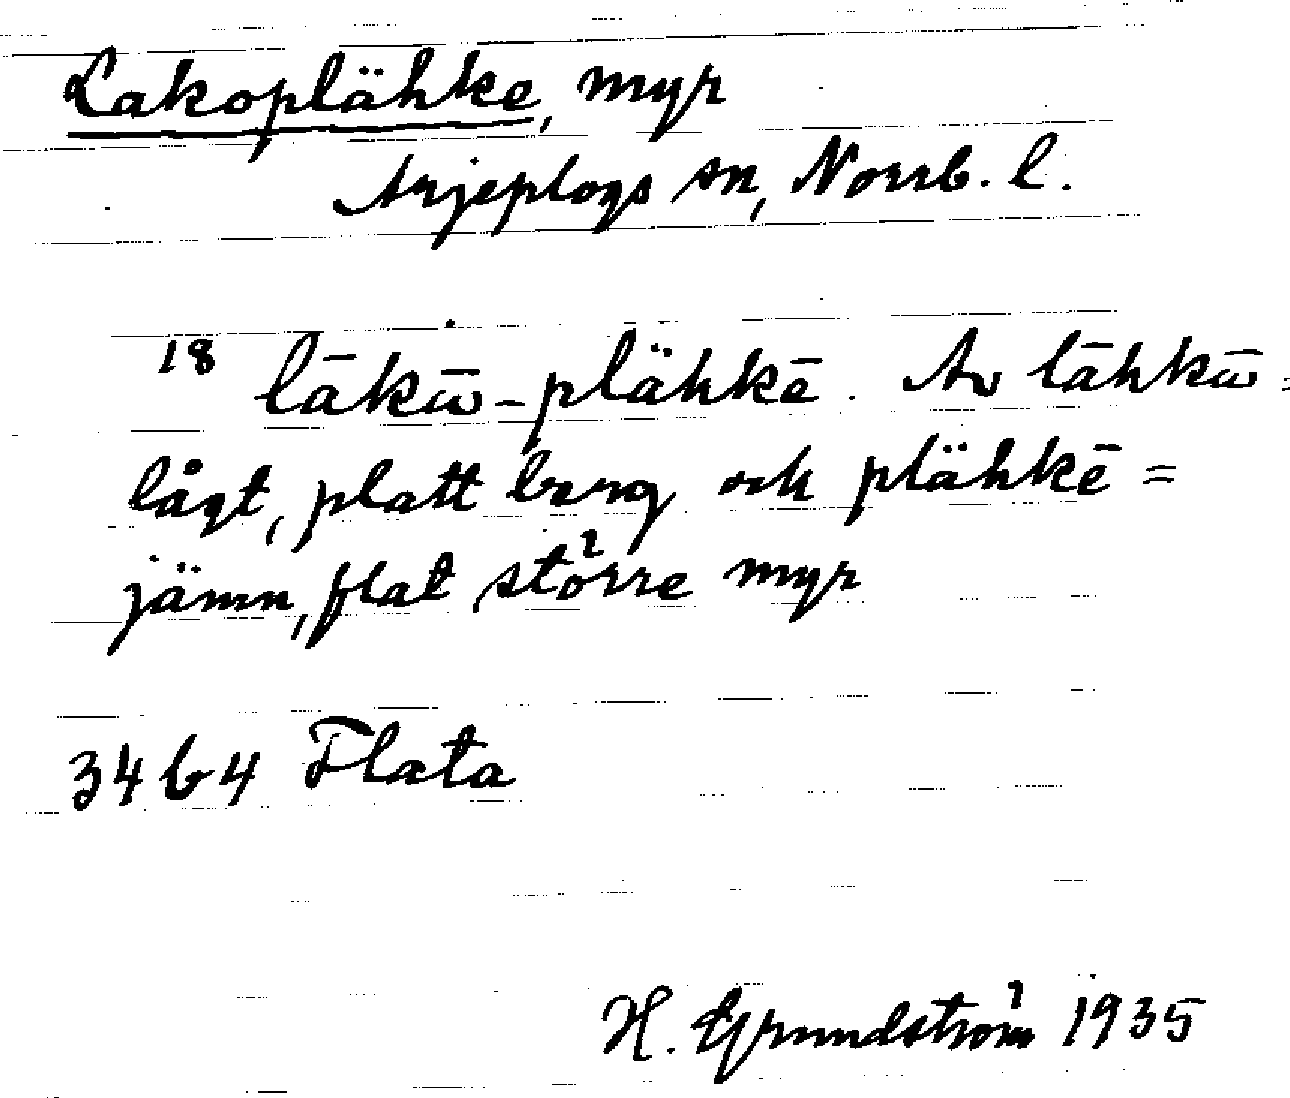 Lakoplähke, myr
Arjeplogs sn, Norrb. l.
18 lākω̄-plähkē. Av lāhkω̄ =
lågt, platt berg och plähkē =
jämn, flat större myr
3464 Flata
H. Grundström 1935